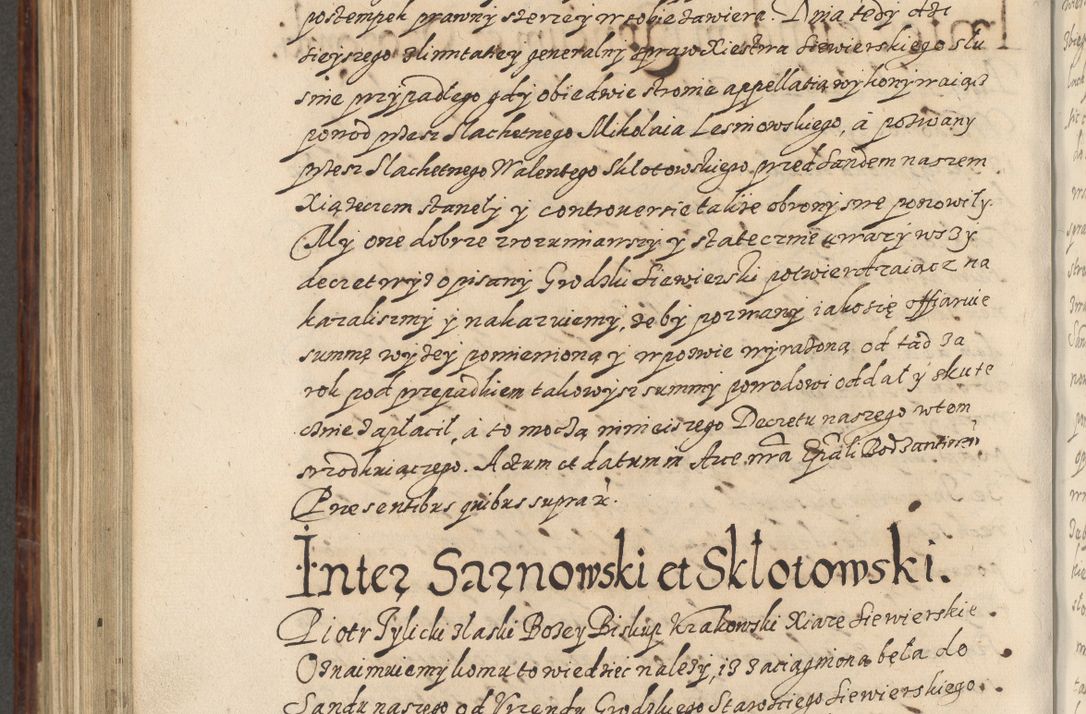 postempek prawny szerzey w sobie zawiera. Dnia tedy dzi
sieyszego z limitatiey generalny spraw Xiestwa Siewierskiego słu
sznie przypadłego gdy obiedwie stronie appellatią wykonywaiącz
powod przesz Slachetnego Mikołaia Lesniowskiego, a pozwany
przesz Slachetnego Walentego Skłotowskiego przed Sandem naszem
Xiązeczem stanely y controuersie takije obrony swe ponowiły.
My one dobrze zrozumiawszy y statecznie uwazywszy
decret wyzopisany Grodzki Siewierski potwierdzaiącz na
kazalismy y nakazuiemy, żeby pozwany iakosię offiaruie
summę wyżey pomienioną y w pozwie wyrażoną od tad za
rok pod przepadkiem takowysz summy powodowi oddał y skute
cznie zapłacił, a to moczą ninieiszego Decretu naszego w tom
srzodkuiączego. Actum et datum in Arce nra Epali Bodzantinen
Presentibus quibus supra.
Inter Sarnowski et Skłotowski.
Piotr Tylicki z łaski Bożey Biskup Krakowski Xiąże Siewierskie
Oznaimuiemy komu to wiedziec należy, iż zaciągniona była do
Sandu naszego od Vrzendu Grodzkiego Starościego Siewierskiego